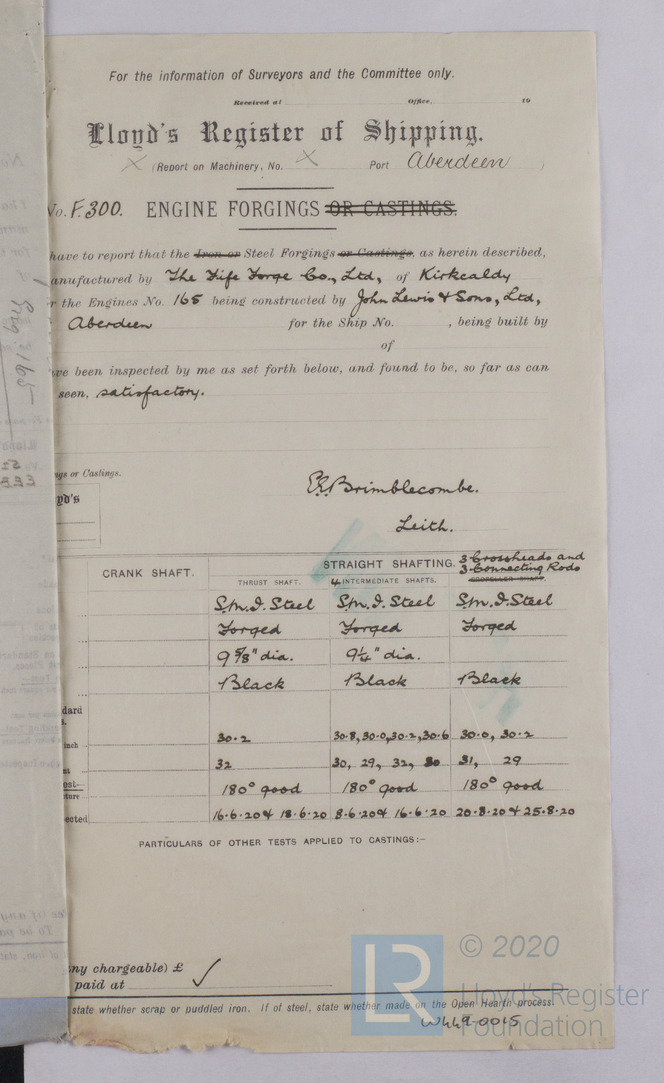 For the information of Surveyors and the Committee only.
Received at Office, 19
Lloyd's Register of Shipping.
X (Report on Machinery, No. X Port Aberdeen )
No. F.300. ENGINE FORGINGS OR CASTINGS.
have to report that the Iron or Steel Forgings or Castings, as herein described,
anufactured by The Fife Forge Co., Ltd, of Kirkcaldy
r the Engines No. 165 being constructed by John Lewis & Sons, Ltd,
Aberdeen for the Ship No. , being built by
of
ve been inspected by me as set forth below, and found to be, so far as can
seen, satisfactory.
Eng. 165
ngs or Castings.
yd's
E.R. Brimblecombe.
Leith.
CRANK SHAFT. STRAIGHT SHAFTING. 3 Crossheads and
3 Connecting Rods
THRUST SHAFT. 4 INTERMEDIATE SHAFTS. PROPELLER SHAFT.
S.M.I. Steel S.M.I. Steel S.M.I. Steel
Forged Forged Forged
9 5/8" dia. 9 1/4" dia.
Black Black Black
dard
s.
inch 30.2 30.8, 30.0, 30.2, 30.6 30.0, 30.2
nt 32 30, 29, 32, 30 31, 29
est— 180° good 180° good 180° good
ture
ected 16.6.20 & 18.6.20 8.6.20 & 16.6.20 20.8.20 & 25.8.20
PARTICULARS OF OTHER TESTS APPLIED TO CASTINGS:—
ny chargeable) £
paid at
state whether scrap or puddled iron. If of steel, state whether made on the Open Hearth process.
W449-0015
© 2020
LR Lloyd's Register
Foundation